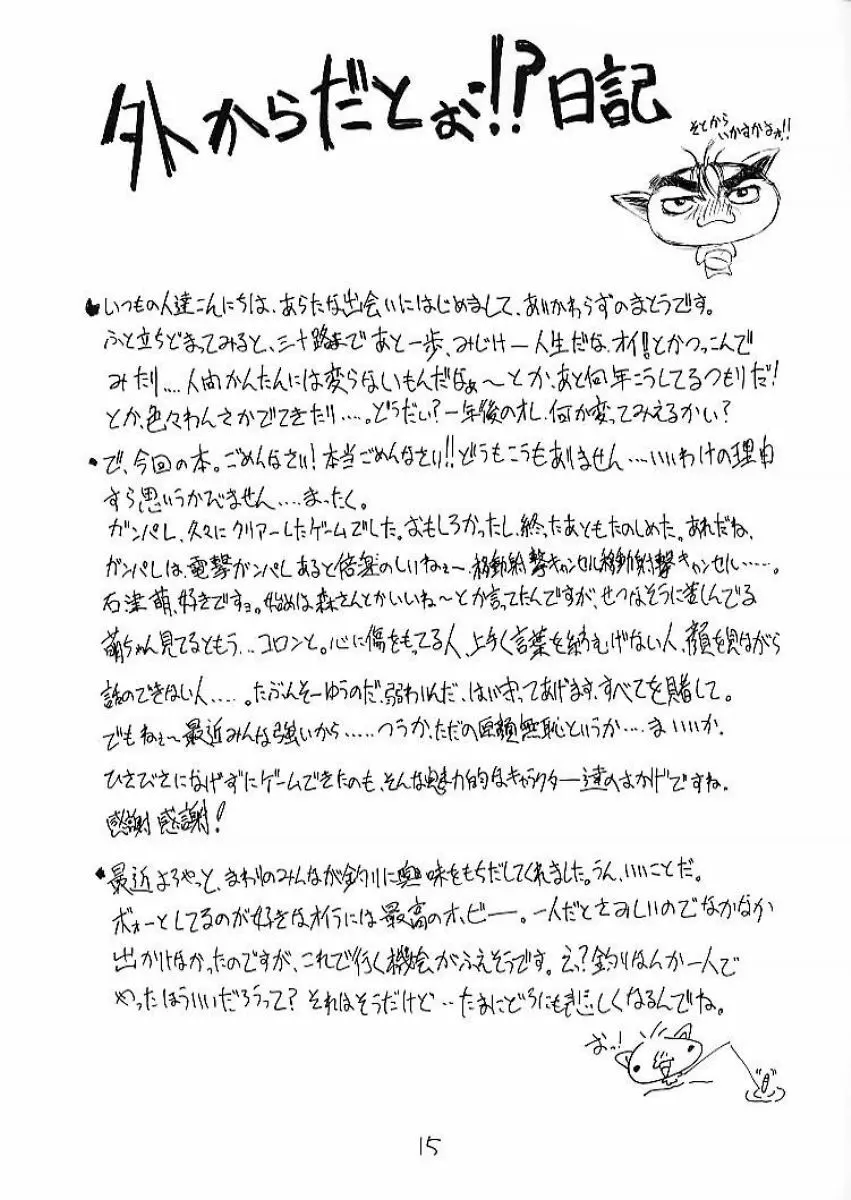 外からだとぉ!!?日記
そとから
いかすかよォ!!
・いつもの人達こんにちは、あらたな出会いにはじめまして、あいかわらずのまとうです。
ふと立ちどまってみると、三十路まであと一歩、みじけー人生だな、オイ!とかつっこんで
みたり....人間かんたんには変らないもんだなぁ〜とか、あと何年こうしてるつもりだ!
とか、色々わんさかでてきたり.....。どうだい?一年後のオレ、何か変ってみえるかい?
・で、今回の本。ごめんなさい!本当ごめんなさい!!どうもこうもありません...いいわけの理由
すら思いうかびません....まったく。
ガンパレ、久々にクリアーしたゲームでした。おもしろかったし、終ったあともたのしめた。あれだね、
ガンパレは、電撃ガンパレあると倍楽のしいねぇ〜、移動射撃キャンセル移動射撃キャンセル.....。
石津萌、好きですョ。始めは森さんとかいいね〜とか言ってたんですが、せつなそうに悲しんでる
萌ちゃん見てるともう...コロンと。心に傷をもってる人、上手く言葉を紡むげない人、顔を見ながら
話のできない人.....。たぶんそーゆうのだ、弱わいんだ、はい守ってあげます、すべてを賭して。
でもねぇ〜最近みんな強いから.....つうか、ただの厚顔無恥というか....ま いいか、
ひさびさになげずにゲームできたのも、そんな魅力的なキャラクター達のおかげですね。
感謝感謝!
・最近よろやっと、まわりのみんなが釣りに興味をもちだしてくれました。うん、いいことだ。
ボォーとしてるのが好きなオイラには最高のホビー。一人だとさみしいのでなかなか
出かけなかったのですが、これで行く機会がふえそうです。え?釣りなんか一人で
やったほういいだろうって?それはそうだけど..たまにどうにも悲しくなるんでね。
おっ!
15